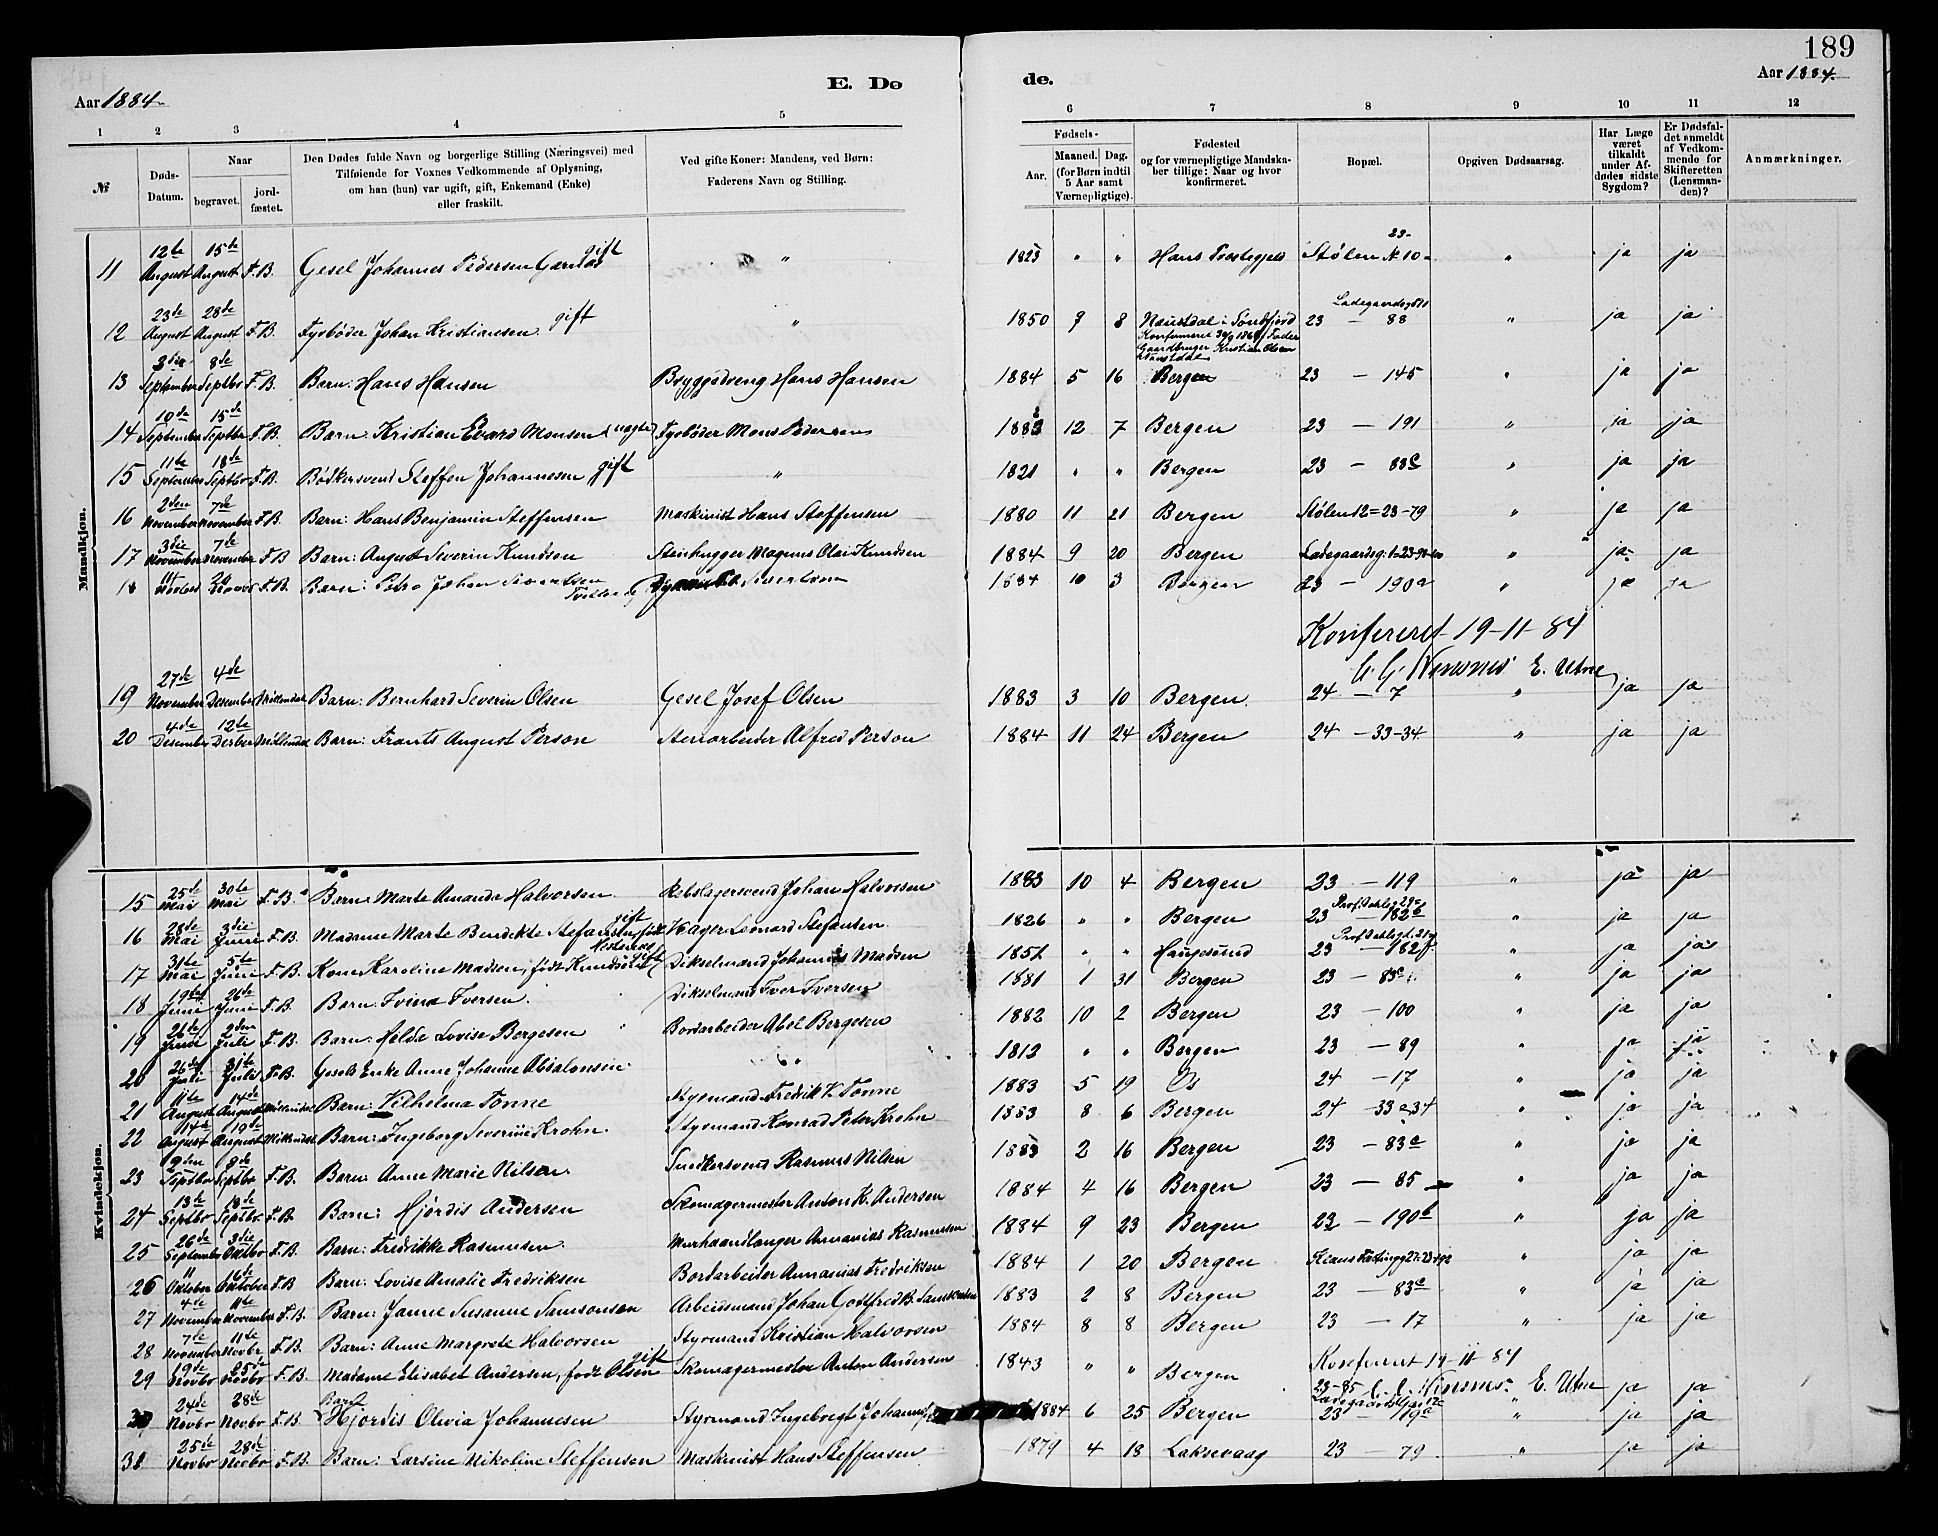 189
Aar 1884.
E. Dø
de.
Aar 1884.
1 2 3 4 5 6 7 8 9 10 11 12
№
Døds-Datum.
Naar
begravet.
jord-fæstet.
Den Dødes fulde Navn og borgerlige Stilling (Næringsvei) med
Tilføiende for Voxnes Vedkommende af Oplysning,
om han (hun) var ugift, gift, Enkemand (Enke)
eller fraskilt.
Ved gifte Koner: Mandens, ved Børn:
Faderens Navn og Stilling.
Fødsels-
Aar.
Maaned. Dag.
(for Børn indtil
5 Aar samt
Værnepligtige).
Fødested
og for værnepligtige Mandska-
ber tillige: Naar og hvor
konfirmeret.
Bopæl.
Opgiven Dødsaarsag.
Har Læge
været
tilkaldt
under Af-
dødes sidste
Sygdom?
Er Dødsfal-
det anmeldt
af Vedkom-
mende for
Skifteretten
(Lensman-
den)?
Anmærkninger.
Mandkjøn.
11 12te August 15de August F.B. Gesel Johannes Pedersen gift " 1823 " " Stølen № 10 23- " ja ja
12 23de August 28de August F.B. Fyrbøder Johan Kristiansen gift " 1850 9 8 Naustdal i Søndfjord Konfirmeret Fader Gaardbruger Kristian Olsen Naustdal Ladegaardsg 23 — 88 " ja ja
13 3die September 8de Septbr F.B. Barn: Hans Hansen Bryggedreng Hans Hansen 1884 5 16 Bergen 23 — 145 " ja ja
14 10de September 15de Septbr F.B. Barn: Kristian Evard Monsen (uægte) Fyrbøder Mons Pedersen 1883 12 7 Bergen 23 — 191 " ja ja
15 11te September 18de Septbr F.B. Bødkersvend Steffen Johannesen gift " 1821 " " Bergen 23 — 83c " ja ja
16 2den November 7de November F.B. Barn: Hans Benjamin Steffensen Maskinist Hans Steffensen 1880 11 21 Bergen Stølen 12 = 23-79 " ja ja
17 3die November 7de November F.B. Barn: August Severin Knudsen Stenhugger Magnus Olai Knudsen 1884 9 20 Bergen Ladegaardsg: " ja ja
18 F.B. Barn: Johan Sivertsen Sivertsen 1884 10 3 Bergen 23 — 190a " ja ja
Konfereret 19-11-84
E. Utne
19 27de November 4de Desember Midlendal Barn: Bernhard Severin Olsen Gesel Josef Olsen 1883 3 10 Bergen 24 — 7 " ja ja
20 4de Desember 12te Desber Midlendal Barn: Frants August Person Stenarbeider Alfred Person 1884 11 24 Bergen 24 — 33-34 " ja ja
Kvindekjøn.
15 25de Mai 30te Mai F.B. Barn: Marte Amanda Halvorsen Rebslagersvend Johan Halvorsen 1883 10 4 Bergen 23 — 119 " ja ja
16 28de Mai 3die Juni F.B. Madame Marte Bendikte Stefansen gift Leonard Stefansen 1826 " " Bergen 23 — 182b " ja ja
17 31te Mai 5te Juni F.B. Kone Karoline Madsen, født Knudsen gift Dikselmand Johannes Madsen 1852 " " Haugesund 23 — 182f " ja ja
18 19de Juni 26de Juni F.B. Barn: Ivina Iversen Dikselmand Iver Iversen 1881 1 31 Bergen 23 — 83c " ja ja
19 26de Juni 2den Juli F.B. Barn: Hilde Lovise Bergesen Bordarbeider Abel Bergesen 1882 10 2 Bergen 23 — 100 " ja ja
20 26de Juli 31te Juli F.B. Gesels Enke Anne Johanne Absalonsen " 1812 " " Bergen 23 — 89 " ja ja
21 11te August 14de August Midlendal Barn: Vilhelma Tonne Styrmand Fredrik V. Tonne 1883 5 19 Os 24 — 17 " ja ja
22 14de August 19de August Midlendal Barn: Ingeborg Severine Krohn Styrmand Konrad Peter Krohn 1883 8 6 Bergen 24 33 & 34 " ja ja
23 2den Septbr 8de Septbr F.B. Barn: Anne Marie Nilsen Snedkersvend Rasmus Nilsen 1883 2 16 Bergen 23 — 83c " ja ja
24 13de Septbr 18de Septbr F.B. Barn: Hjørdis Andersen Skomagermester Anton K. Andersen 1884 4 16 Bergen 23 — 85 " ja ja
25 26de September 3die Oktbr F.B. Barn: Fredrikke Rasmusen Murhaandlanger Annanias Rasmusen 1884 9 23 Bergen 23 — 190b " ja ja
26 11 Oktober 16de Oktober F.B. Barn: Lovise Amalie Fredriksen Bordarbeider Annanias Fredriksen 1884 1 20 Bergen " ja ja
27 4de November 11te November F.B. Barn: Janne Susanne Samsonsen Arbeidsmand Johan Gottfred B. Samsonsen 1883 2 8 Bergen 23 — 83c " ja ja
28 7de November 11te Novbr F.B. Barn: Anne Margrete Halvorsen Styrmand Kristian Halvorsen 1884 8 8 Bergen 23 — 17 " ja ja
29 19de Novbr 25de Novbr F.B. Madame Elisabet Andersen, født Olsen gift Skomagermester Anton Andersen 1843 " " Bergen 23-85 ja ja
Konfereret 19-11-84
E. Utne
30 24de Novbr 28de Novbr F.B. Barn Hjørdis Olivia Johannesen Styrmand Ingebregt Johannesen 1884 6 25 Bergen 23 — 19a " ja ja
31 25de Novbr 28de Novbr F.B. Barn: Larsine Nikoline Steffensen Maskinist Hans Steffensen 1879 4 18 Laksevaag 23 — 79 " ja ja